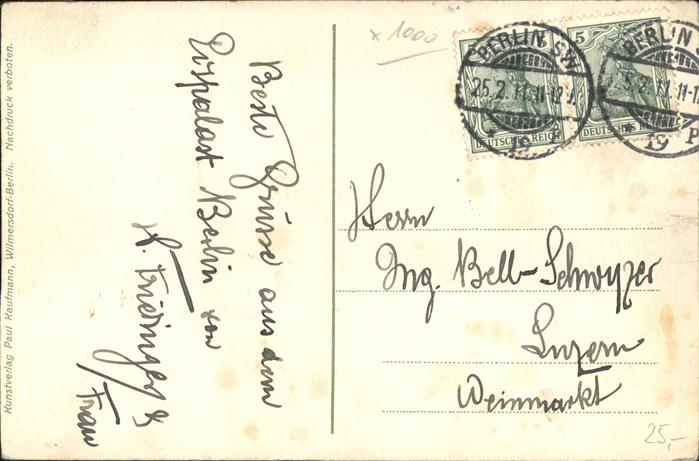 Kunstverlag Paul Kaufmann, Wilmersdorf-Berlin. Nachdruck verboten.
Beste Grüsse aus dem
Eispalast Berlin von
Frau
x 1000
5
DEUTSCHES REICH
BERLIN SW
25.2.11.11-12
* 19
5
DEUTSCHES REICH
BERLIN
19
Herrn
Ing. Bell-Schwyzer
Luzern
Weinmarkt
25,-